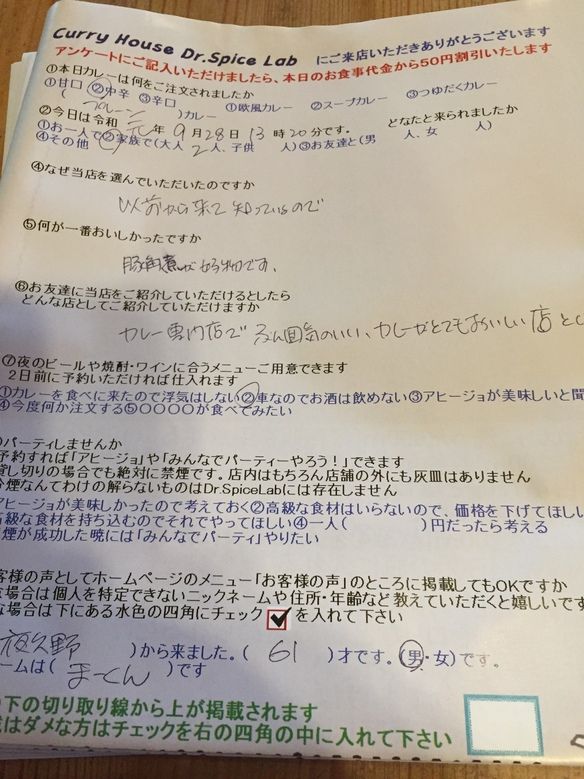 Curry House Dr.Spice Lab にご来店いただきありがとうございます
アンケートにご記入いただけましたら、本日のお食事代金から50円割引いたします
①本日カレーは何をご注文されましたか
①甘口 ②中辛 ③辛口 ①欧風カレー ②スープカレー ③つゆだくカレー
( プレーン )カレー
②今日は令和 元 年 9 月 28 日 13 時 20 分です。 どなたと来られましたか
①お一人で ②家族で(大人 2 人、子供 人)③お友達と(男 人、女 人)
④その他
④なぜ当店を選んでいただいたのですか
以前から来て知っているので
⑤何が一番おいしかったですか
豚角煮が好物です、
⑥お友達に当店をご紹介していただけるとしたら
どんな店としてご紹介していただけますか
カレー専門店で ふん囲気のいい、カレーがとてもおいしい店 とし
⑦夜のビールや焼酎・ワインに合うメニューご用意できます
2日前に予約いただければ仕入れます
①カレーを食べに来たので浮気はしない②車なのでお酒は飲めない③アヒージョが美味しいと聞
④今度何か注文する⑤〇〇〇〇が食べてみたい
パーティしませんか
予約すれば「アヒージョ」や「みんなでパーティーやろう!」できます
貸し切りの場合でも絶対に禁煙です。店内はもちろん店舗の外にも灰皿はありません
煙なんてわけの解らないものはDr.SpiceLabには存在しません
アヒージョが美味しかったので考えておく②高級な食材はいらないので、価格を下げてほしい
高級な食材を持ち込むのでそれでやってほしい④一人( )円だったら考える
煙が成功した暁には「みんなでパーティ」やりたい
客様の声としてホームページのメニュー「お客様の声」のところに掲載してもOKですか
な場合は個人を特定できないニックネームや住所・年齢など教えていただくと嬉しいです
な場合は下にある水色の四角にチェック ✓ を入れて下さい
夜久野 )から来ました。( 61 )才です。(男・女)です。
ームは( まーくん )です
下の切り取り線から上が掲載されます
はダメな方はチェックを右の四角の中に入れて下さい